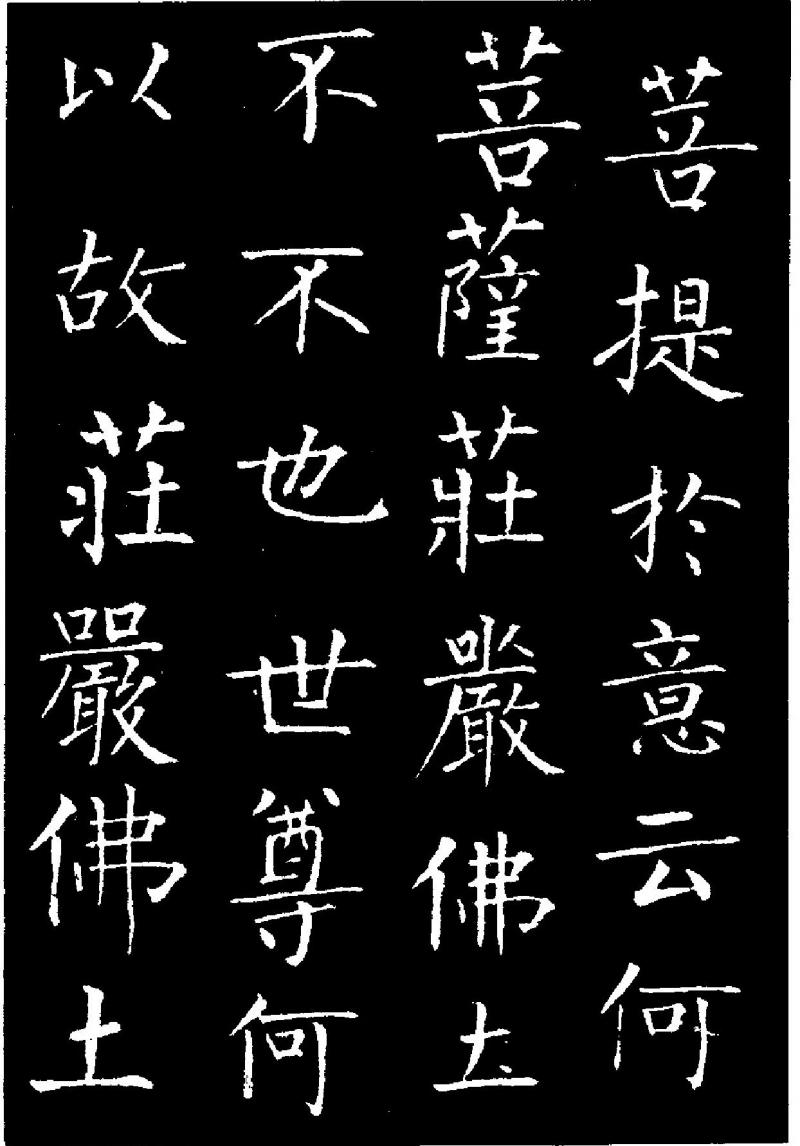 菩提於意云何
菩薩莊嚴佛土
不不也世尊何
以故莊嚴佛土